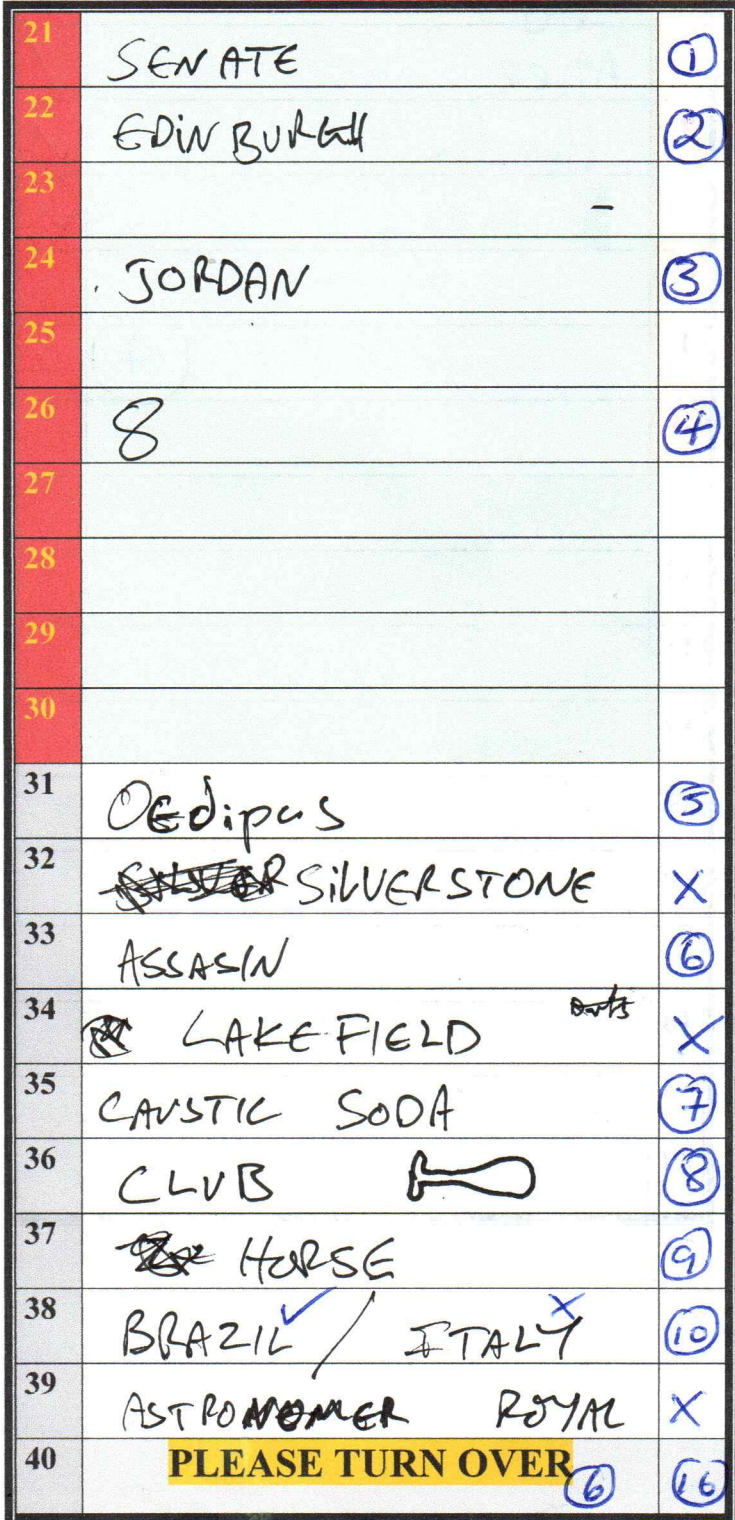 21 SENATE 1
22 EDINBURGH 2
23 -
24 JORDAN 3
25
26 8 4
27
28
29
30
31 Oedipus 5
32 SILVERSTONE X
33 ASSASIN 6
34 LAKEFIELD X
35 CAUSTIC SODA 7
36 CLUB 8
37 HORSE 9
38 BRAZIL ✓ / ITALY X 10
39 ASTRONOMER ROYAL X
40 PLEASE TURN OVER 6 16